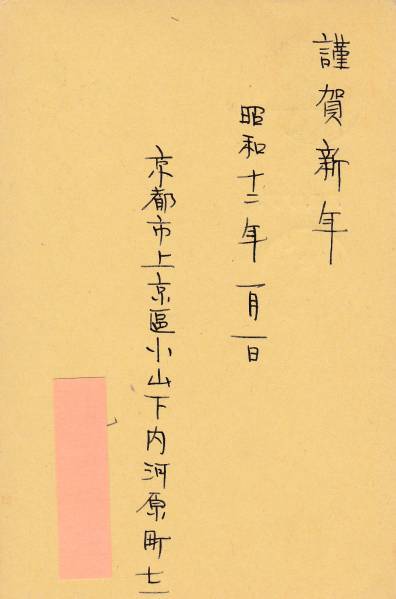 謹賀新年
昭和十二年一月一日
京都市上京區小山下内河原町七一